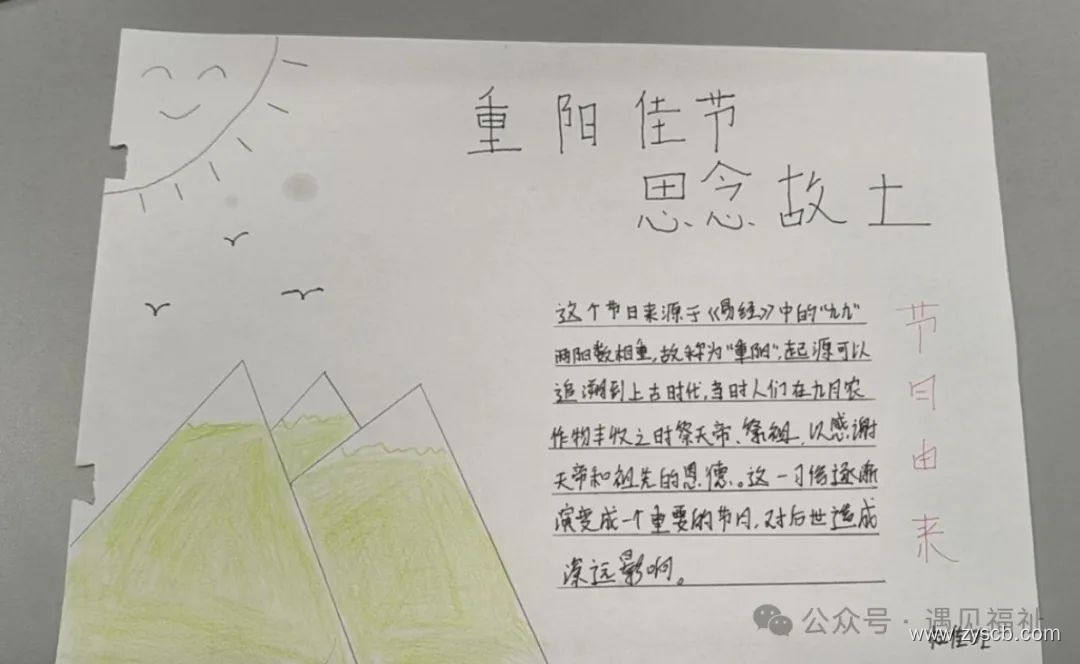 重阳佳节
思念故土
这个节日来源于《易经》中的"九九"
两阳数相重,故称为"重阳",起源可以
追溯到上古时代,当时人们在九月农
作物丰收之时祭天帝、祭祖,以感谢
天帝和祖先的恩德。这一习俗逐渐
演变成一个重要的节日,对后世造成
深远影响。
节日由来
公众号·遇见福祉
www.zyscb.com